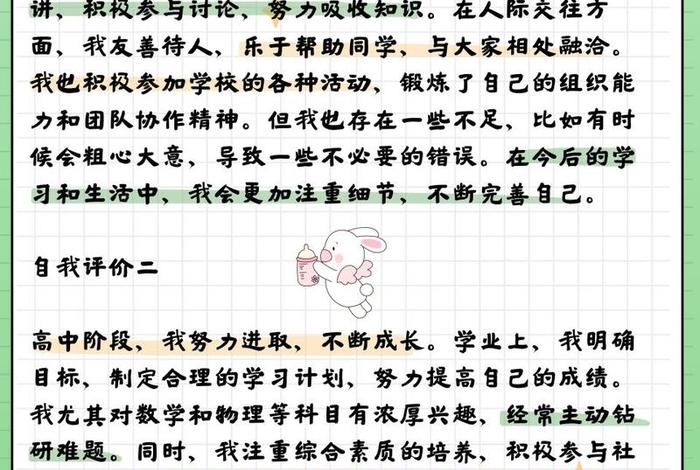 讲，积极参与讨论，努力吸收知识。在人际交往方
面，我友善待人，乐于帮助同学，与大家相处融洽。
我也积极参加学校的各种活动，锻炼了自己的组织能
力和团队协作精神。但我也存在一些不足，比如有时
候会粗心大意，导致一些不必要的错误。在今后的学
习和生活中，我会更加注重细节，不断完善自己。
自我评价二
高中阶段，我努力进取，不断成长。学业上，我明确
目标，制定合理的学习计划，努力提高自己的成绩。
我尤其对数学和物理等科目有浓厚兴趣，经常主动钻
研难题。同时，我注重综合素质的培养，积极参与社